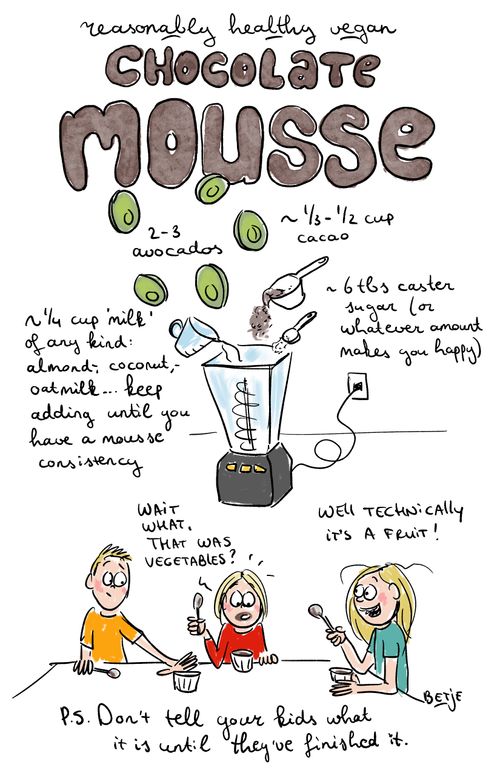 reasonably healthy vegan
CHOCOLATE
MOUSSE
2-3
avocados
~ 1/3 - 1/2 cup
cacao
~ 6 tbs caster
sugar (or
whatever amount
makes you happy)
~ 1/4 cup 'milk'
of any kind:
almond-, coconut,-
oatmilk... keep
adding until you
have a mousse
consistency
WAIT
WHAT.
THAT WAS
VEGETABLES?
WELL TECHNICALLY
IT'S A FRUIT!
BETJE
P.S. Don't tell your kids what
it is until they've finished it.